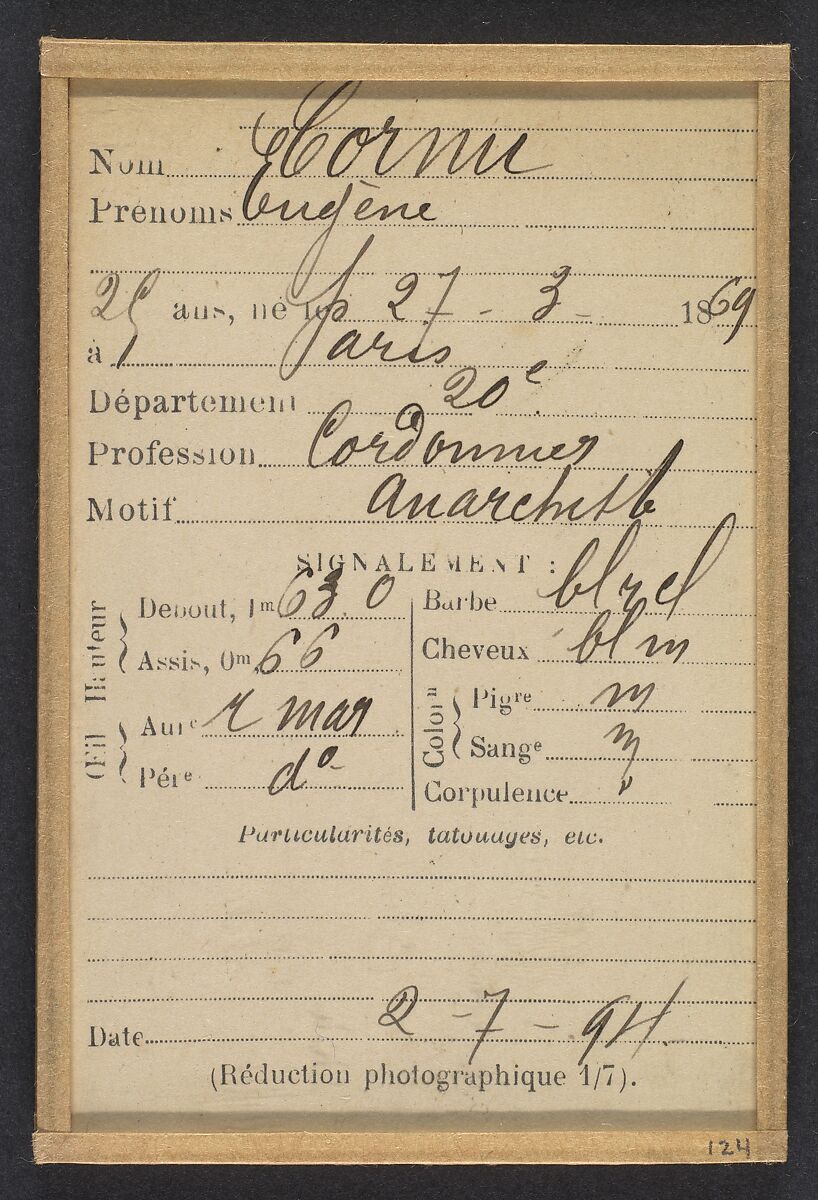 Nom Cornu
Prénoms Eugène
25 ans, né le 27 - 3 - 1869
à Paris
Département 20e
Profession Cordonnier
Motif Anarchiste
SIGNALEMENT :
Hauteur
Debout, 1m 63.0
Assis, 0m, 66
Œil
Aure r mar
Pére do
Barbe bl
Cheveux bl m
Color n
Pigre m
Sange m
Corpulence "
Particularités, tatouages, etc.
Date 2 - 7 - 94.
(Réduction photographique 1/7).
124